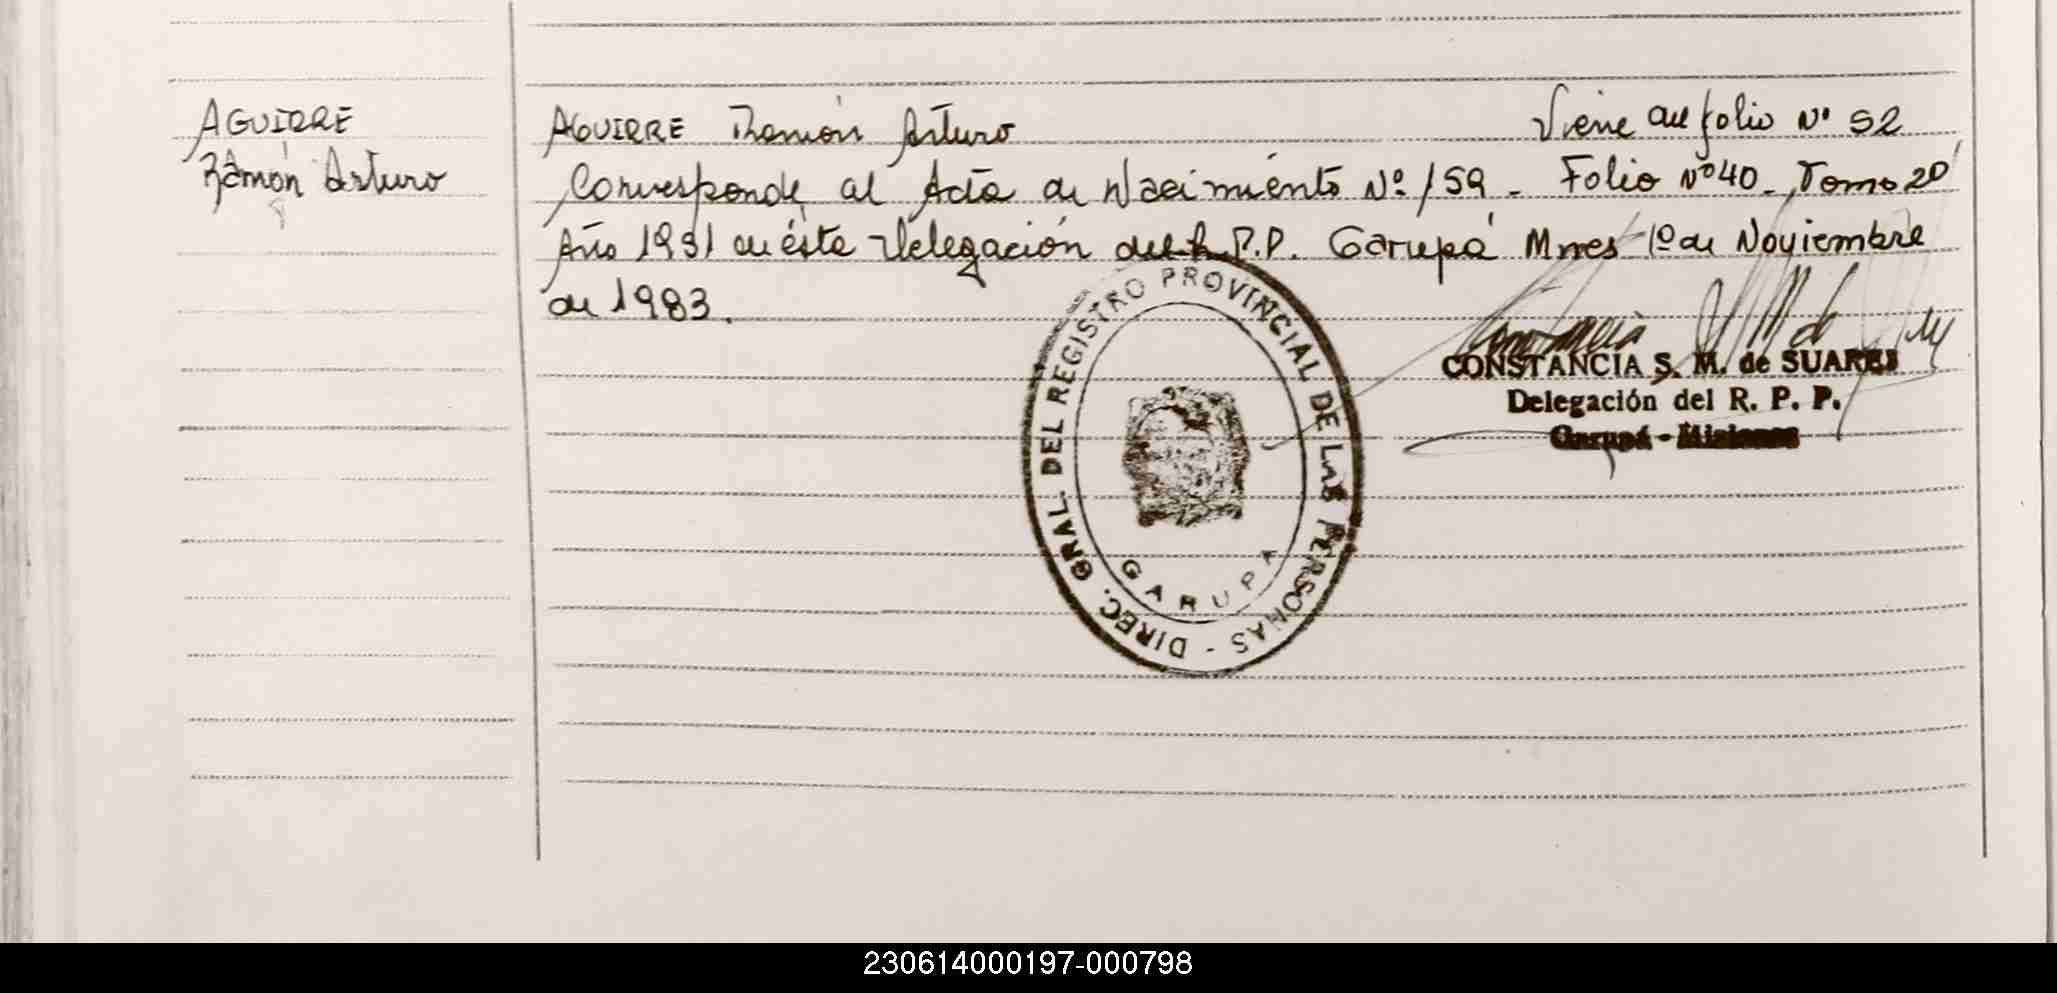 AGUIRRE
Ramón Arturo
AGUIRRE Ramón Arturo
Viene del folio Nº 52
Corresponde al Acta de Nacimiento Nº 159 - Folio Nº 40 - Tomo 20
Año 1931 en ésta Delegación del R.P.P. Garupá Mnes 1º de Noviembre
de 1983.
DIREC. GRAL. DEL REGISTRO PROVINCIAL DE LAS PERSONAS -
GARUPA
CONSTANCIA S. M. de SUARES
Delegación del R. P. P.
Garupá - Misiones
230614000197-000798